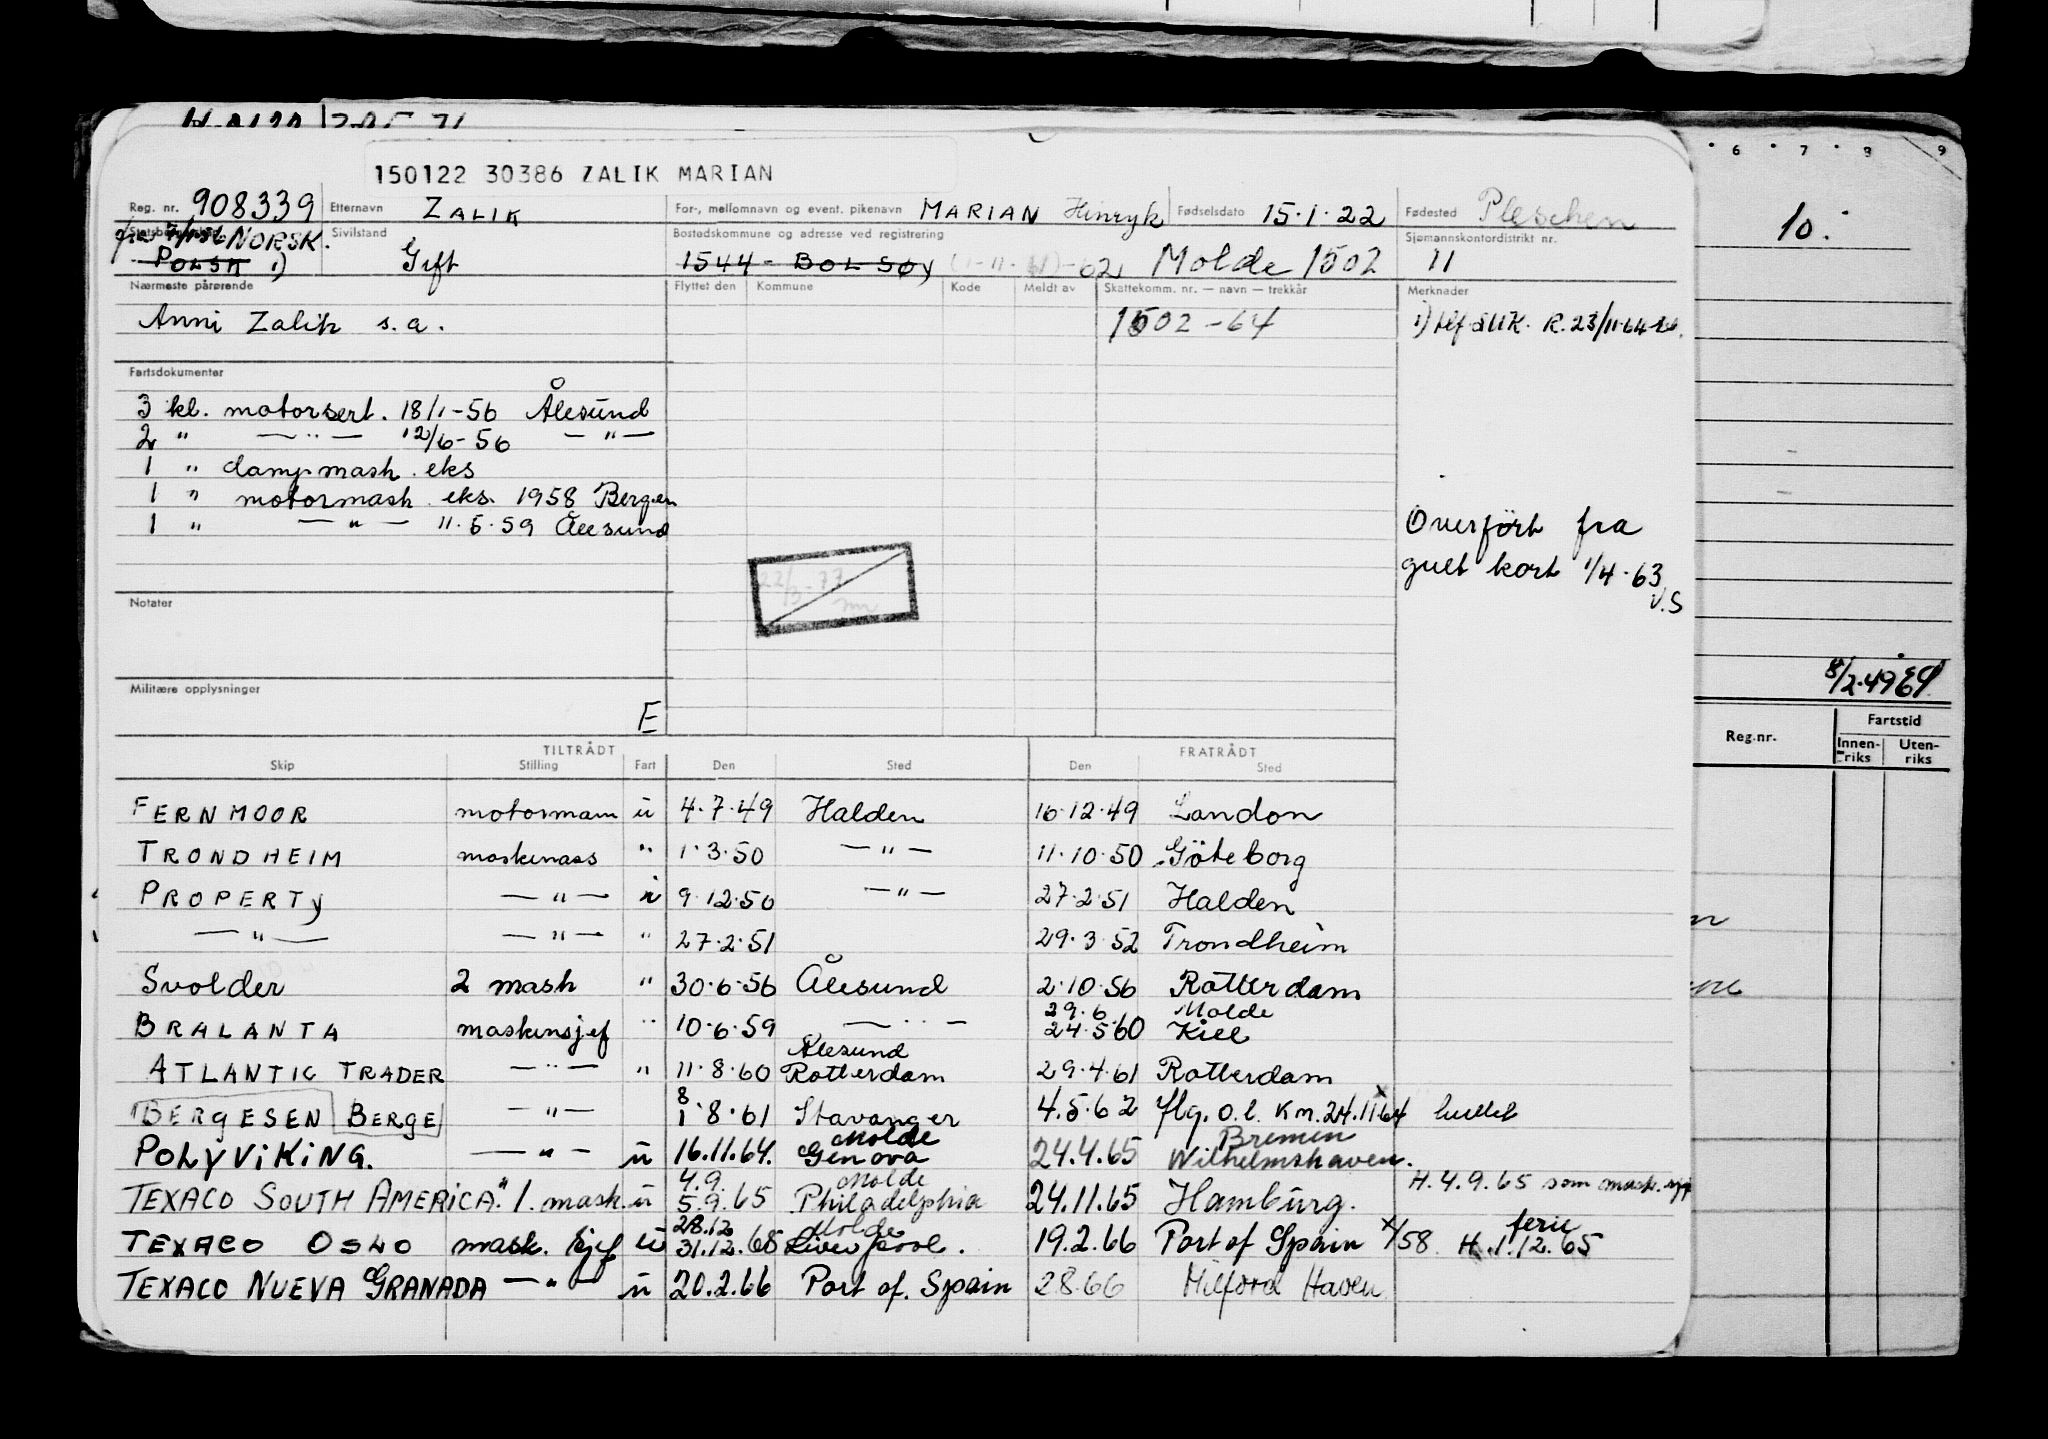 150122 30386 ZALIK MARIAN
Reg. nr. 908339 Etternavn ZALIK For-, mellomnavn og event. pikenavn MARIAN Hinryk Fødselsdato 15.1.22 Fødested Pleschen
fra NORSK. Sivilstand Bostedskommune og adresse ved registrering Sjømannskontordistrikt nr.
POLSK 1) Gift 1544 - BOLSØY Molde 1502 11
Nærmeste pårørende Flyttet den Kommune Kode Meldt av Skattekomm. nr. — navn — trekkår Merknader
Anni Zalik s.a. 1502 - 64 1) tlf. SUK. R. 23/11-64
Fartsdokumenter
3 kl. motorsert. 18/1-56 Ålesund
2 " — " — 12/6-56 — " —
1 " dampmask. eks
1 " motormask. eks. 1958 Bergen
1 " — " — 11.5.59 Ålesund
Overført fra
gult kort 1/4-63
V.S
22/3-77
Notater
Militære opplysninger
E
8/2.49
10.
6 7 8 9
Reg.nr. Fartstid
Innen-riks Uten-riks
TILTRÅDT FRATRÅDT
Skip Stilling Fart Den Sted Den Sted
FERNMOOR motormann u 4.7.49 Halden 16.12.49 London
TRONDHEIM maskinass " 1.3.50 — " — 11.10.50 Göteborg
PROPERTY — " — i 9.12.50 — " — 27.2.51 Halden
— " — — " — " 27.2.51 29.3.52 Trondheim
Svolder 2 mask " 30.6.56 Ålesund 2.10.56 Rotterdam
29.6. Molde
BRALANTA maskinsjef " 10.6.59 — " — 24.5.60 Kiel
Ålesund
ATLANTIC TRADER — " — " 11.8.60 Rotterdam 29.4.61 Rotterdam
8
BERGESEN BERGE — " — 1.8.61 Stavanger 4.5.62 flg. o.l. Km. 24.11.64 hullet
Molde Bremen
POLYVIKING. — " — u 16.11.64. Genova 24.4.65 Wilhelmshaven.
4.9. Molde H. 4.9.65 som mask.
TEXACO SOUTH AMERICA." 1. mask. u 5.9.65 Philadelphia 24.11.65 Hamburg.
28.12 Molde ferie
TEXACO OSLO mask. sjef u 31.12.65 Liverpool. 19.2.66 Port of Spain x/58 H. 1.12.65
TEXACO NUEVA GRANADA — " — u 20.2.66 Port of. Spain 28.66 Milford Haven